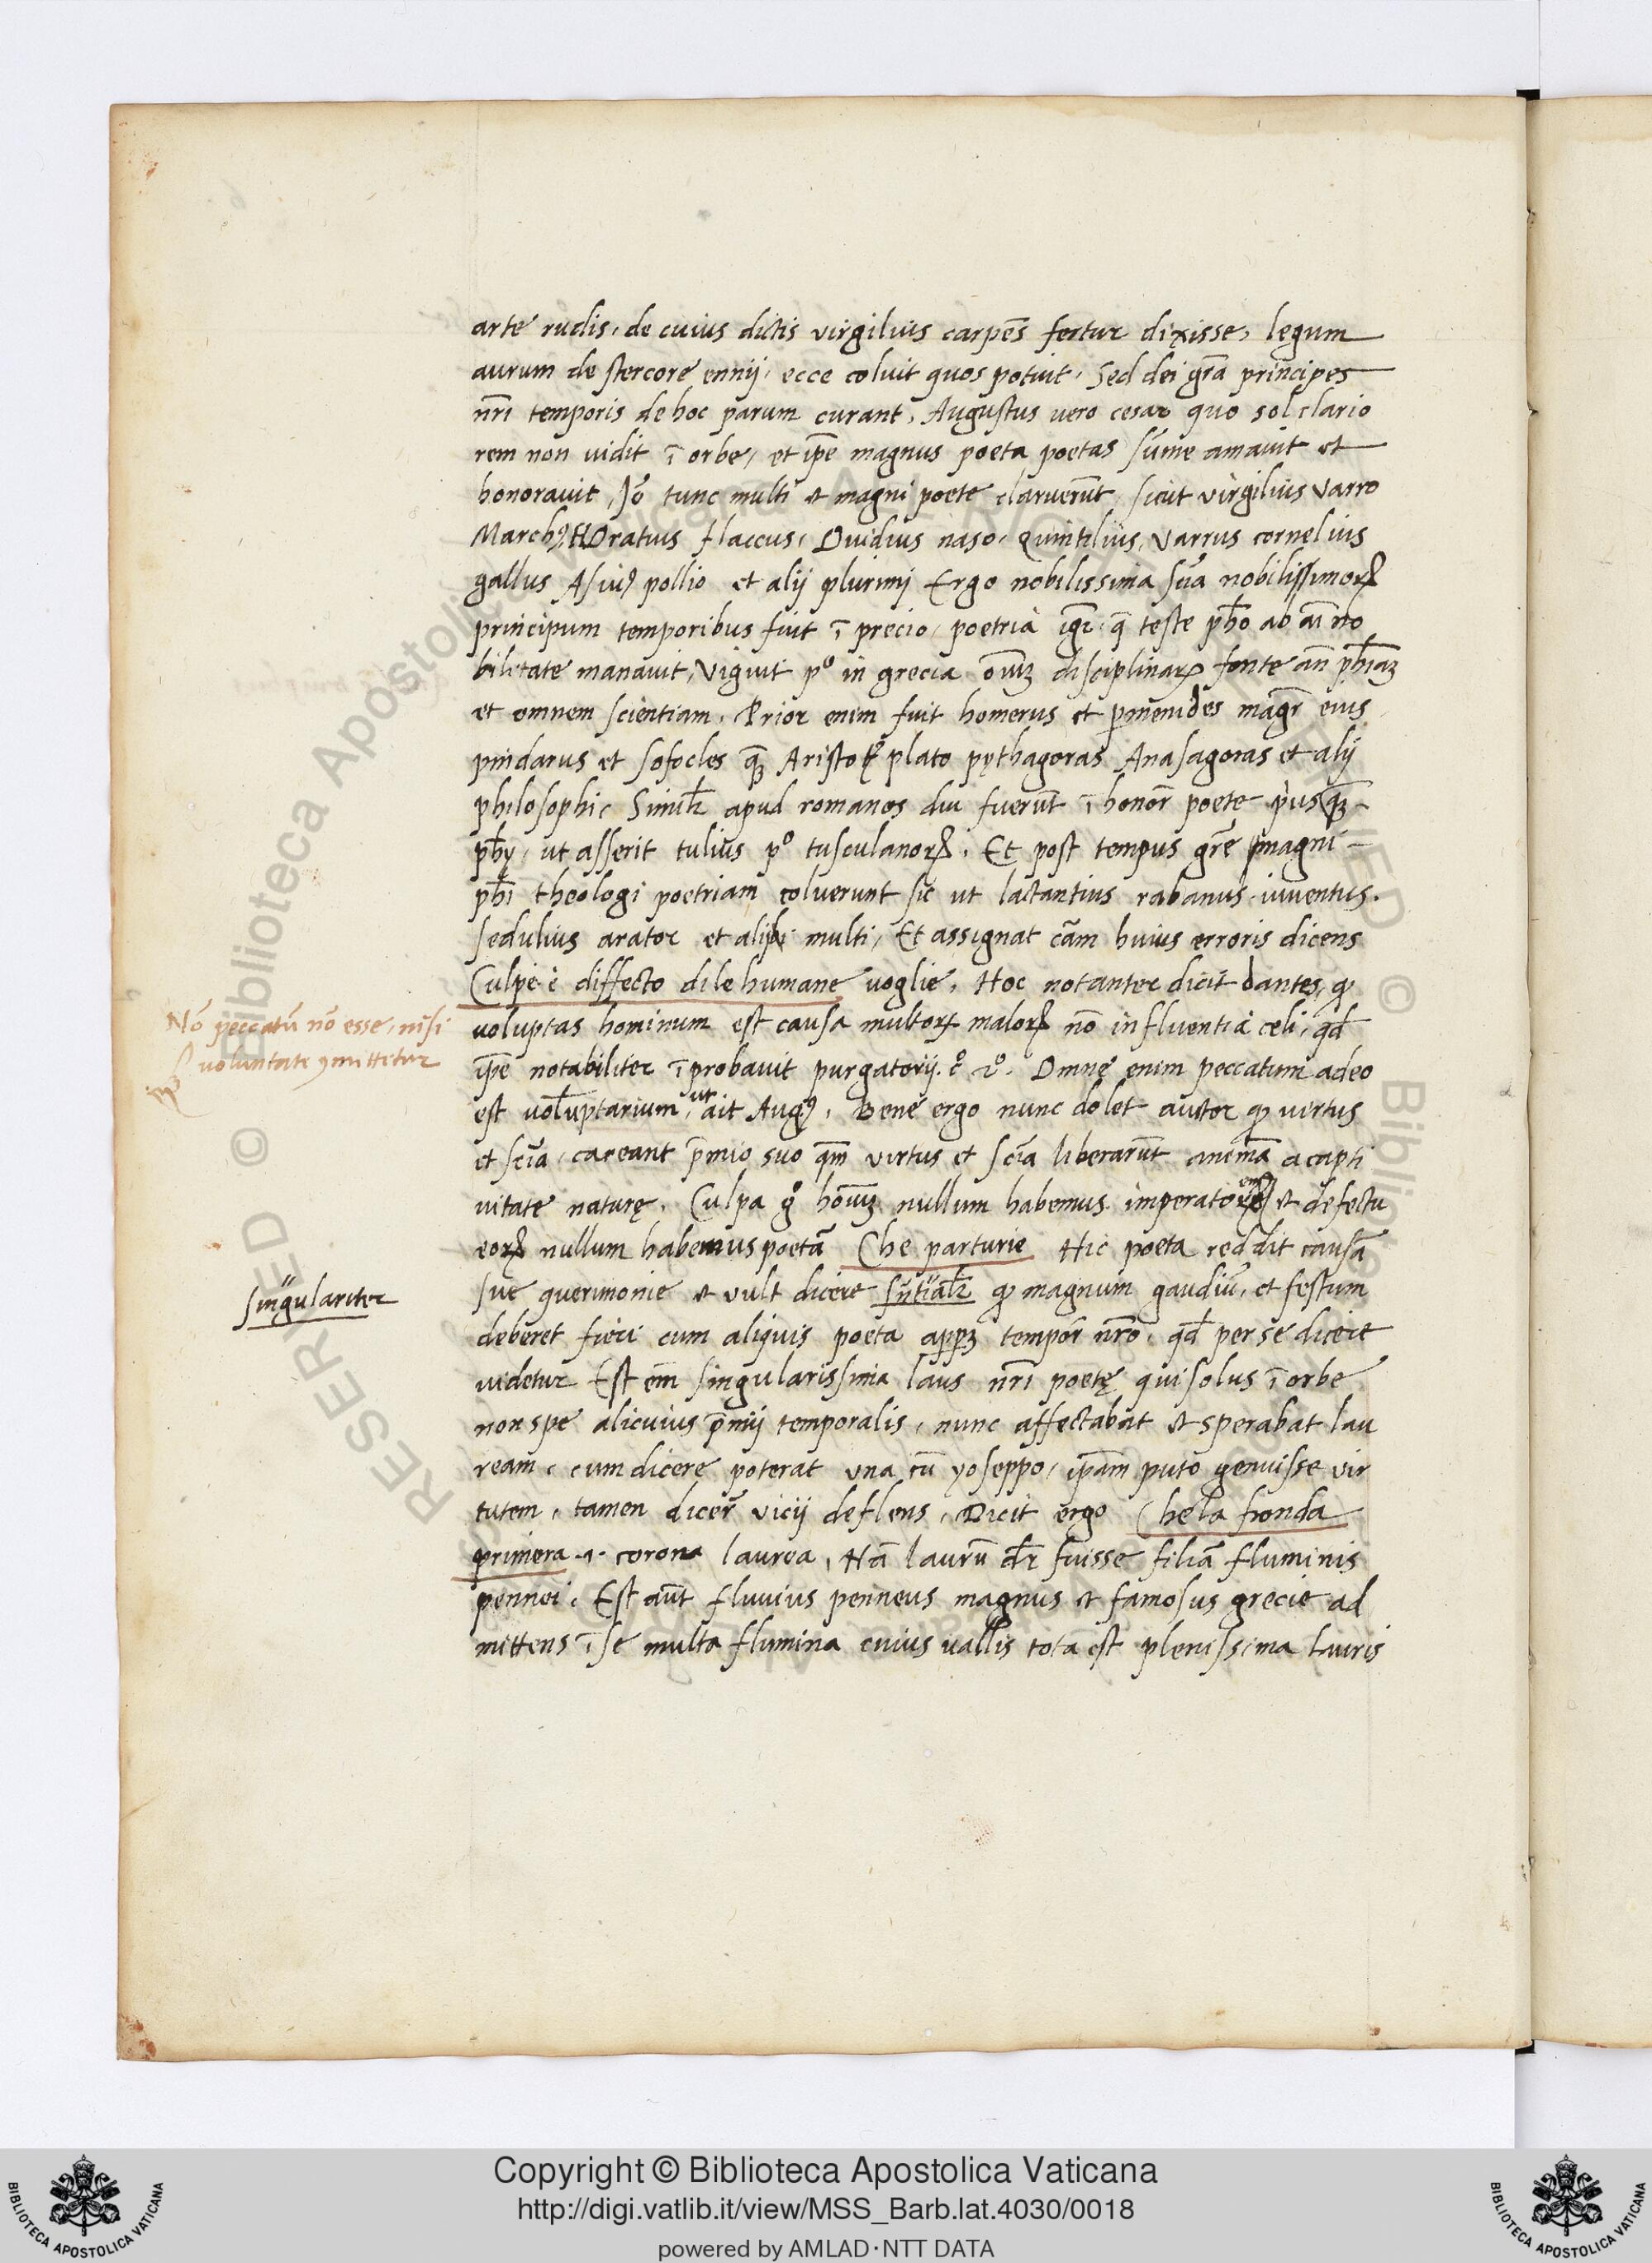 arte rudis, de cuius dictis virgilius carpēs fertur dixisse, legum
aurum de stercore ennij, ecce coluit quos potuit, Sed dei grā principes
nr̄i temporis de hoc parum curant, Augustus vero cesar quo sol clario
rem non uidit ī orbe, et ip̄e magnus poeta poetas sūme amauit et
honorauit, Jō tunc multi et magni poete claruerūt, sicut virgilius Varro
Oratius flaccus, Ouidius naso, Quintilius, Varrus cornelius
gallus pollio et alij plurimj Ergo nobilissima nobilissimoꝝ
principum temporibus fuit ī precio, poetria teste pħo ab no
bilitate manauit, Viguit pº in grecia om̄iuꝫ disciplinaꝝ fonte an̄ pħiaꝫ
et omnem scientiam, Prior enim fuit homerus et magr̄ eius
pindarus et sofocles Aristot plato pythagoras Anasagoras et alij
philosophi, Simil'r apud romanos diu fuerūt ī honor̄ poete
pħy, ut asserit tulius pº tusculanoꝝ, Et post tempus magni
pħi theologi poetriam coluerunt sic ut lactantius rabanus iuuentus.
sedulius arator et alij multi, Et assignat cām huius erroris dicens
Culpe è diffecto dile humane voglie, Hoc notanter dicit dantes, ꝙ
voluptas hominum est causa multoꝝ maloꝝ nō influentia celi, qđ
ip̄e notabiliter īprobauit purgatorij. Omne enim peccatum adeo
est voluptarium, ut ait Augꝰ, Bene ergo nunc dolet auctor ꝙ virtus
et scīa careant p̄mio suo virtus et scīa liberarūt a capti
uitate naturę, Culpa gº nullum habemus imperatorem et defectu
eoꝝ nullum habemus poetā Che parturie Hic poeta reddit causā
sue querimonie et vult dicere ꝙ magnum gaudiū, et festum
deberet fieri cum aliquis poeta tempor̄ nr̄o, qđ per se dicere
uidetur Est em̄ singularissima laus nr̄i poetę qui solus ī orbe
non spe alicuius p̄mij temporalis, nunc affectabat et sperabat lau
ream, cum dicere poterat una cū yoseppo, ip̄am puto genuisse vir
tutem, tamen vicij deflens, Dicit ergo Che la fronda
primera .i. corona laurea, Nā laurū dr̄ fuisse filiā fluminis
pennei, Est aūt fluuius penneus magnus et famosus grecie ad
mittens ī se multa flumina cuius vallis tota est plenissima lauris
Nō peccatū nō esse, nisi
voluntate ꝯmittetur
singulariter
Copyright © Biblioteca Apostolica Vaticana
http://digi.vatlib.it/view/MSS_Barb.lat.4030/0018
powered by AMLAD·NTT DATA
BIBLIOTECA APOSTOLICA VATICANA
BIBLIOTECA APOSTOLICA VATICANA